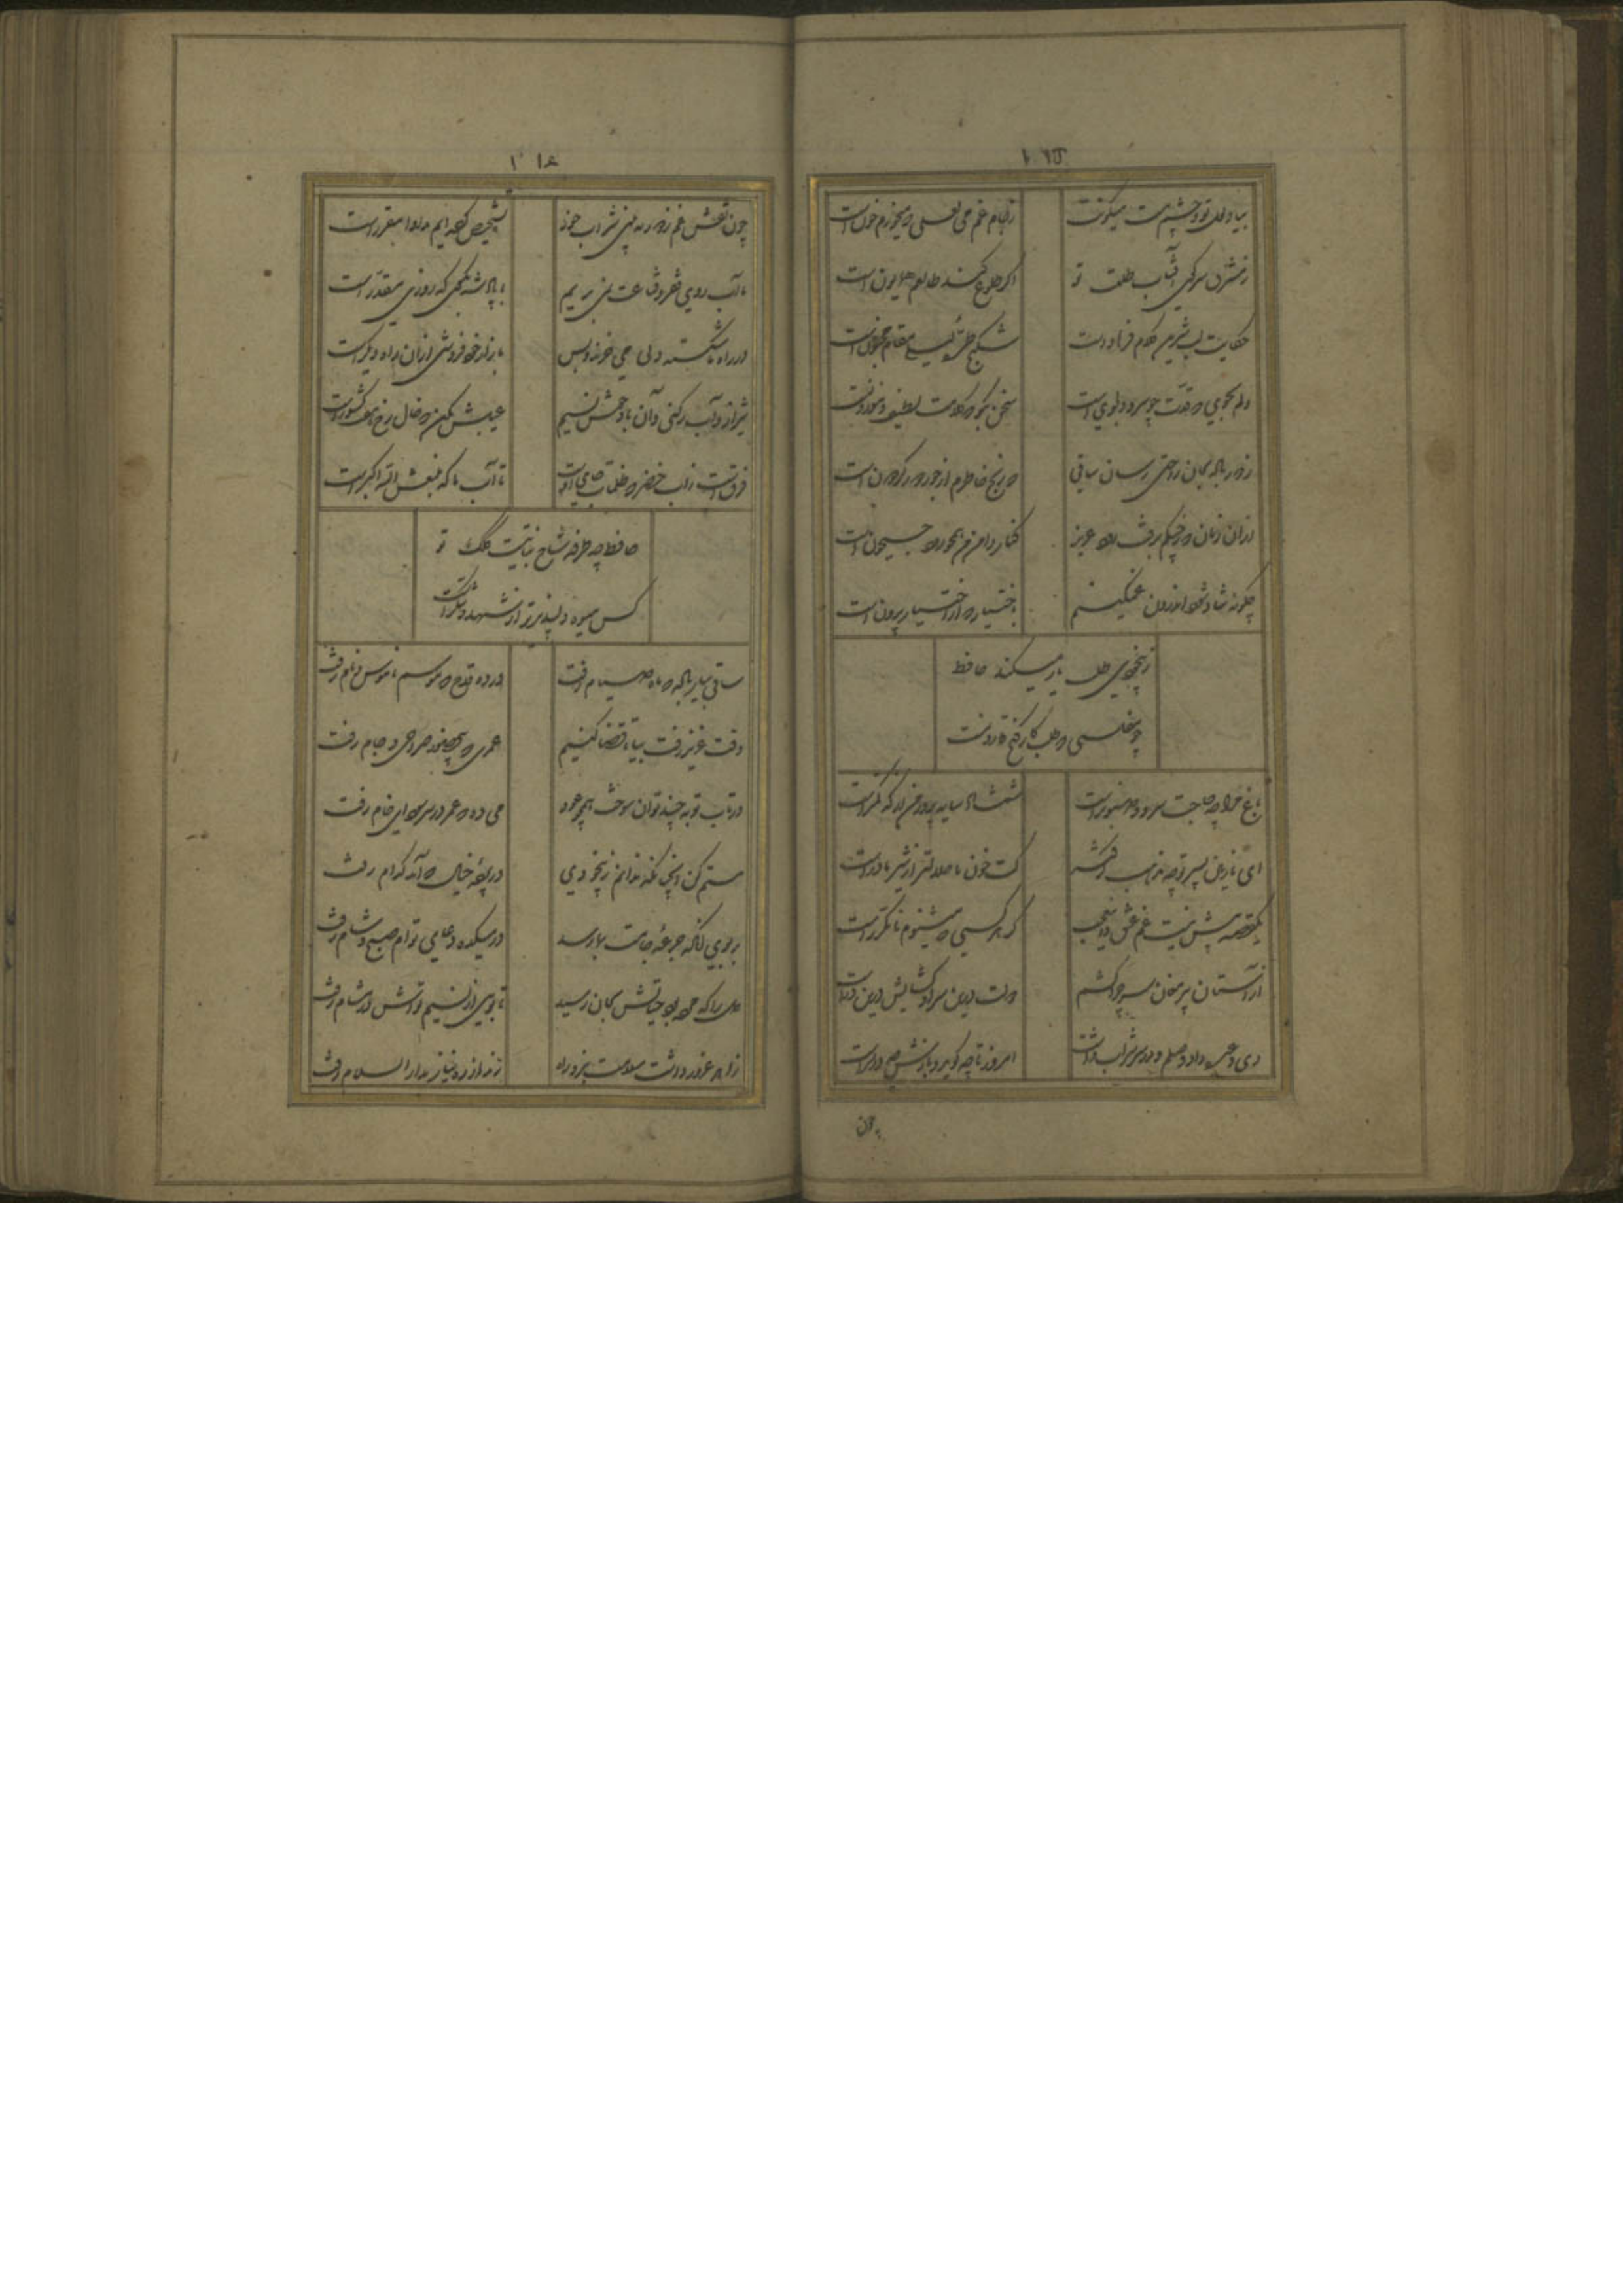 ۱۱۵
بیاد لعل تو و چشم مست میگونت ز جام غم می لعلی که میخورم خون است
ز مشرق سر کوی آفتاب طلعت تو اکر طلوع کند طالعم همایون است
حکایت لب شیرین کلام فرهاد است شکنج طرهٔ لیلی مقام مجنون است
دلم بجوی که قدت چو سرو دلجوی است سخن بکو که کلامت لطیف و موزونست
ز دور باده بجان راحتی رسان ساقی که رنج خاطرم از جور دور کردون است
ازان زمان که ز چنکم برفت رود عزیز کنار دامن من همچو رود جیحون است
چکونه شاد شود اندرون غمکینم باختیار که از اختیار بیرون است
ز بیخودی طلب یار میکند حافظ
چو مفلسی که طلبکار کنج قارونست
باغ مرا چه حاجت سرو و صنوبر است شمشاد سایه پرور من از که کمتر است
ای نازنین پسر تو چه مذهب کرفتهٔ کت خون ما حلالتر از شیر مادر است
یکقصه بیش نیست غم عشق و این عجب کز هر کسی که میشنوم نامکرر است
از آستان پیر مغان سر چرا کشم دولت درین سرا و کشایش درین در است
دی وعده داد وصلم و در سر شراب داشت امروز تا چه کوید و بازش چه در سر است
چون
۱۱۶
چون نقش غم ز دور به بینی شراب خور تشخیص کرده ایم مداوا مقرر است
ما آب روی فقر و قناعت نمی بریم با پادشه بکوی که روزی مقدر است
در راه ما شکسته دلی می خرند و بس بازار خود فروشی ازان راه دیکر است
شیراز و آب رکنی و آن باد خوش نسیم عیبش مکن که خال رخ هفت کشور است
فرق است از آب خضر که ظلمات جای اوست تا آب ما که منبعش الله اکبر است
حافظ چه طرفه شاخ نباتیست کلک تو
کس میوه دلپذیرتر از شهد و شکر است
ساقی بیار باده که ماه صیام رفت در ده قدح که موسم ناموس و نام رفت
وقت عزیز رفت بیا تا قضا کنیم عمری که بی حضور صراحی و جام رفت
در تاب توبه چند توان سوخت همچو عود می ده که عمر در سر سودای خام رفت
مستم کن آنچنان که ندانم ز بیخودی در عرصهٔ خیال که آمد کدام رفت
بر بوی آنکه جرعهٔ جامت بما رسد در میکده دعای تو ام صبح و شام رفت
دل را که مرده بود حیاتش بجان رسید تا بویی از نسیم تواش در مشام رفت
زاهد غرور داشت سلامت نبرد راه رند از ره نیاز بدار السلام رفت